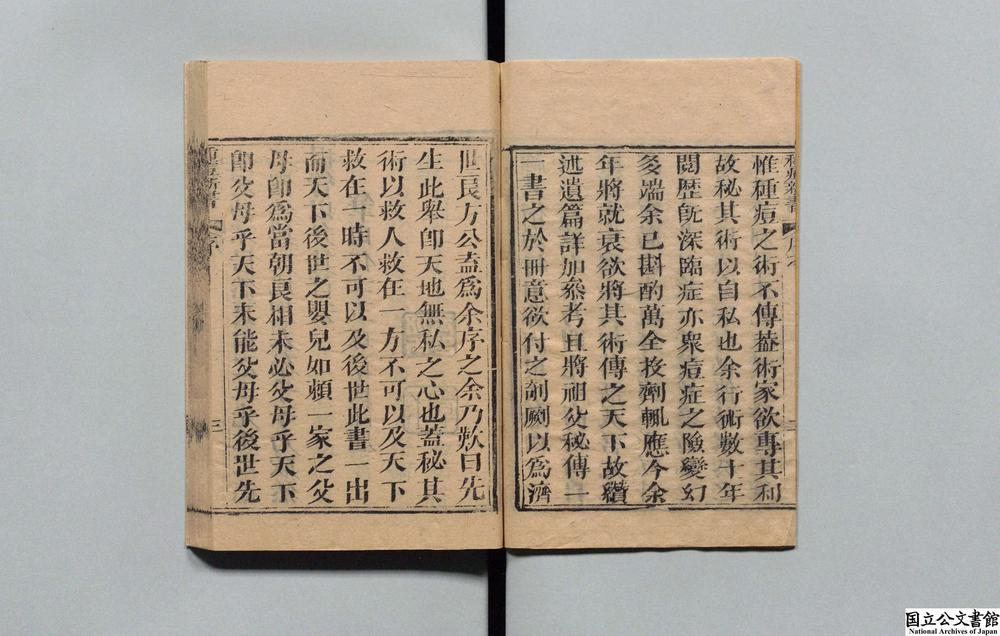 惟種痘之術不傳葢術家欲專其利
故秘其術以自私也余行術數十年
閱歷既深臨症亦衆痘症之險變幻
多端余已斟酌萬全投劑輒應今余
年將就衰欲將其術傳之天下故纘
述遺篇詳加叅考且將祖父秘傳一
一書之於冊意欲付之剞劂以爲濟
世良方公盍爲余序之余乃歎曰先
生此舉卽天地無私之心也蓋秘其
術以救人救在一方不可以及天下
救在一時不可以及後世此書一出
而天下後世之嬰兒如賴一家之父
母卽爲當朝良相未必父母乎天下
卽父母乎天下未能父母乎後世先
種痘新書
序
三
国立公文書館
National Archives of Japan